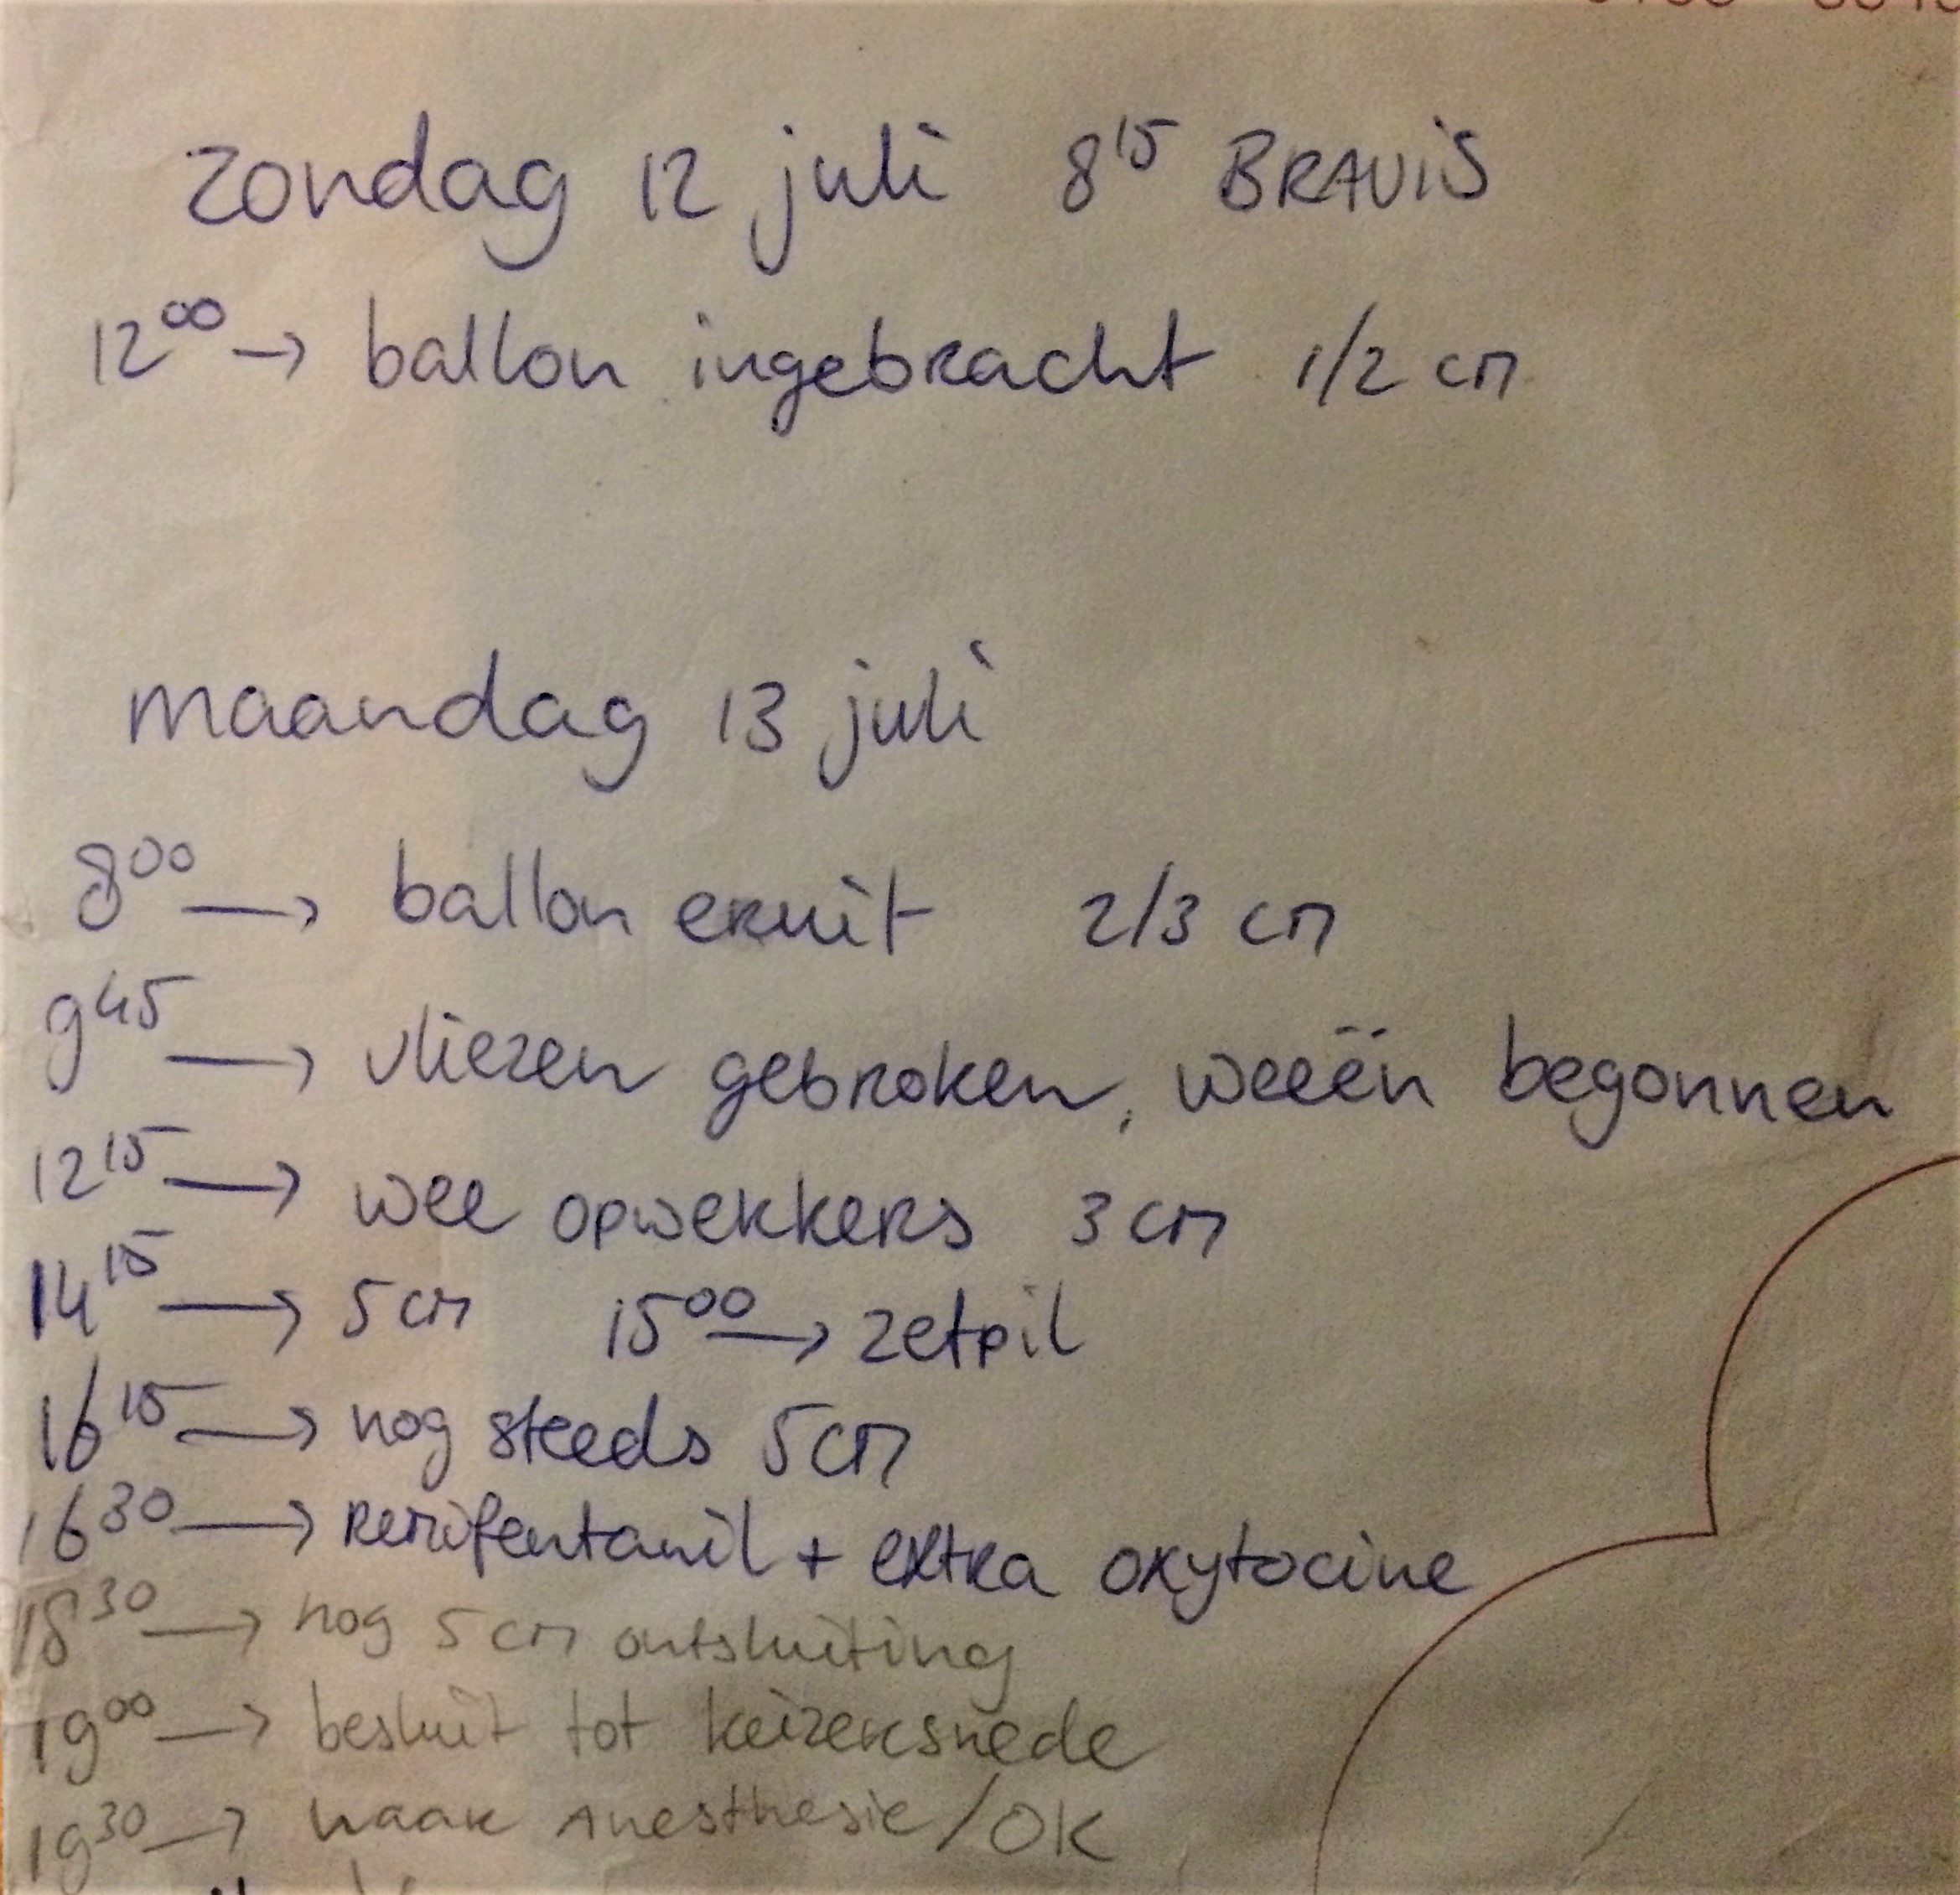 zondag 12 juli 8¹⁵ BRAViS
12⁰⁰ → ballon ingebracht 1/2 cm
maandag 13 juli
8⁰⁰ → ballon eruit 2/3 cm
9⁴⁵ → vliezen gebroken, weeën begonnen
12¹⁵ → wee opwekkers 3 cm
14¹⁵ → 5 cm 15⁰⁰ → zetpil
16¹⁵ → nog steeds 5 cm
16³⁰ → Remifentanil + extra oxytocine
18³⁰ → nog 5 cm ontsluiting
19⁰⁰ → besluit tot keizersnede
19³⁰ → naar Anesthesie/OK